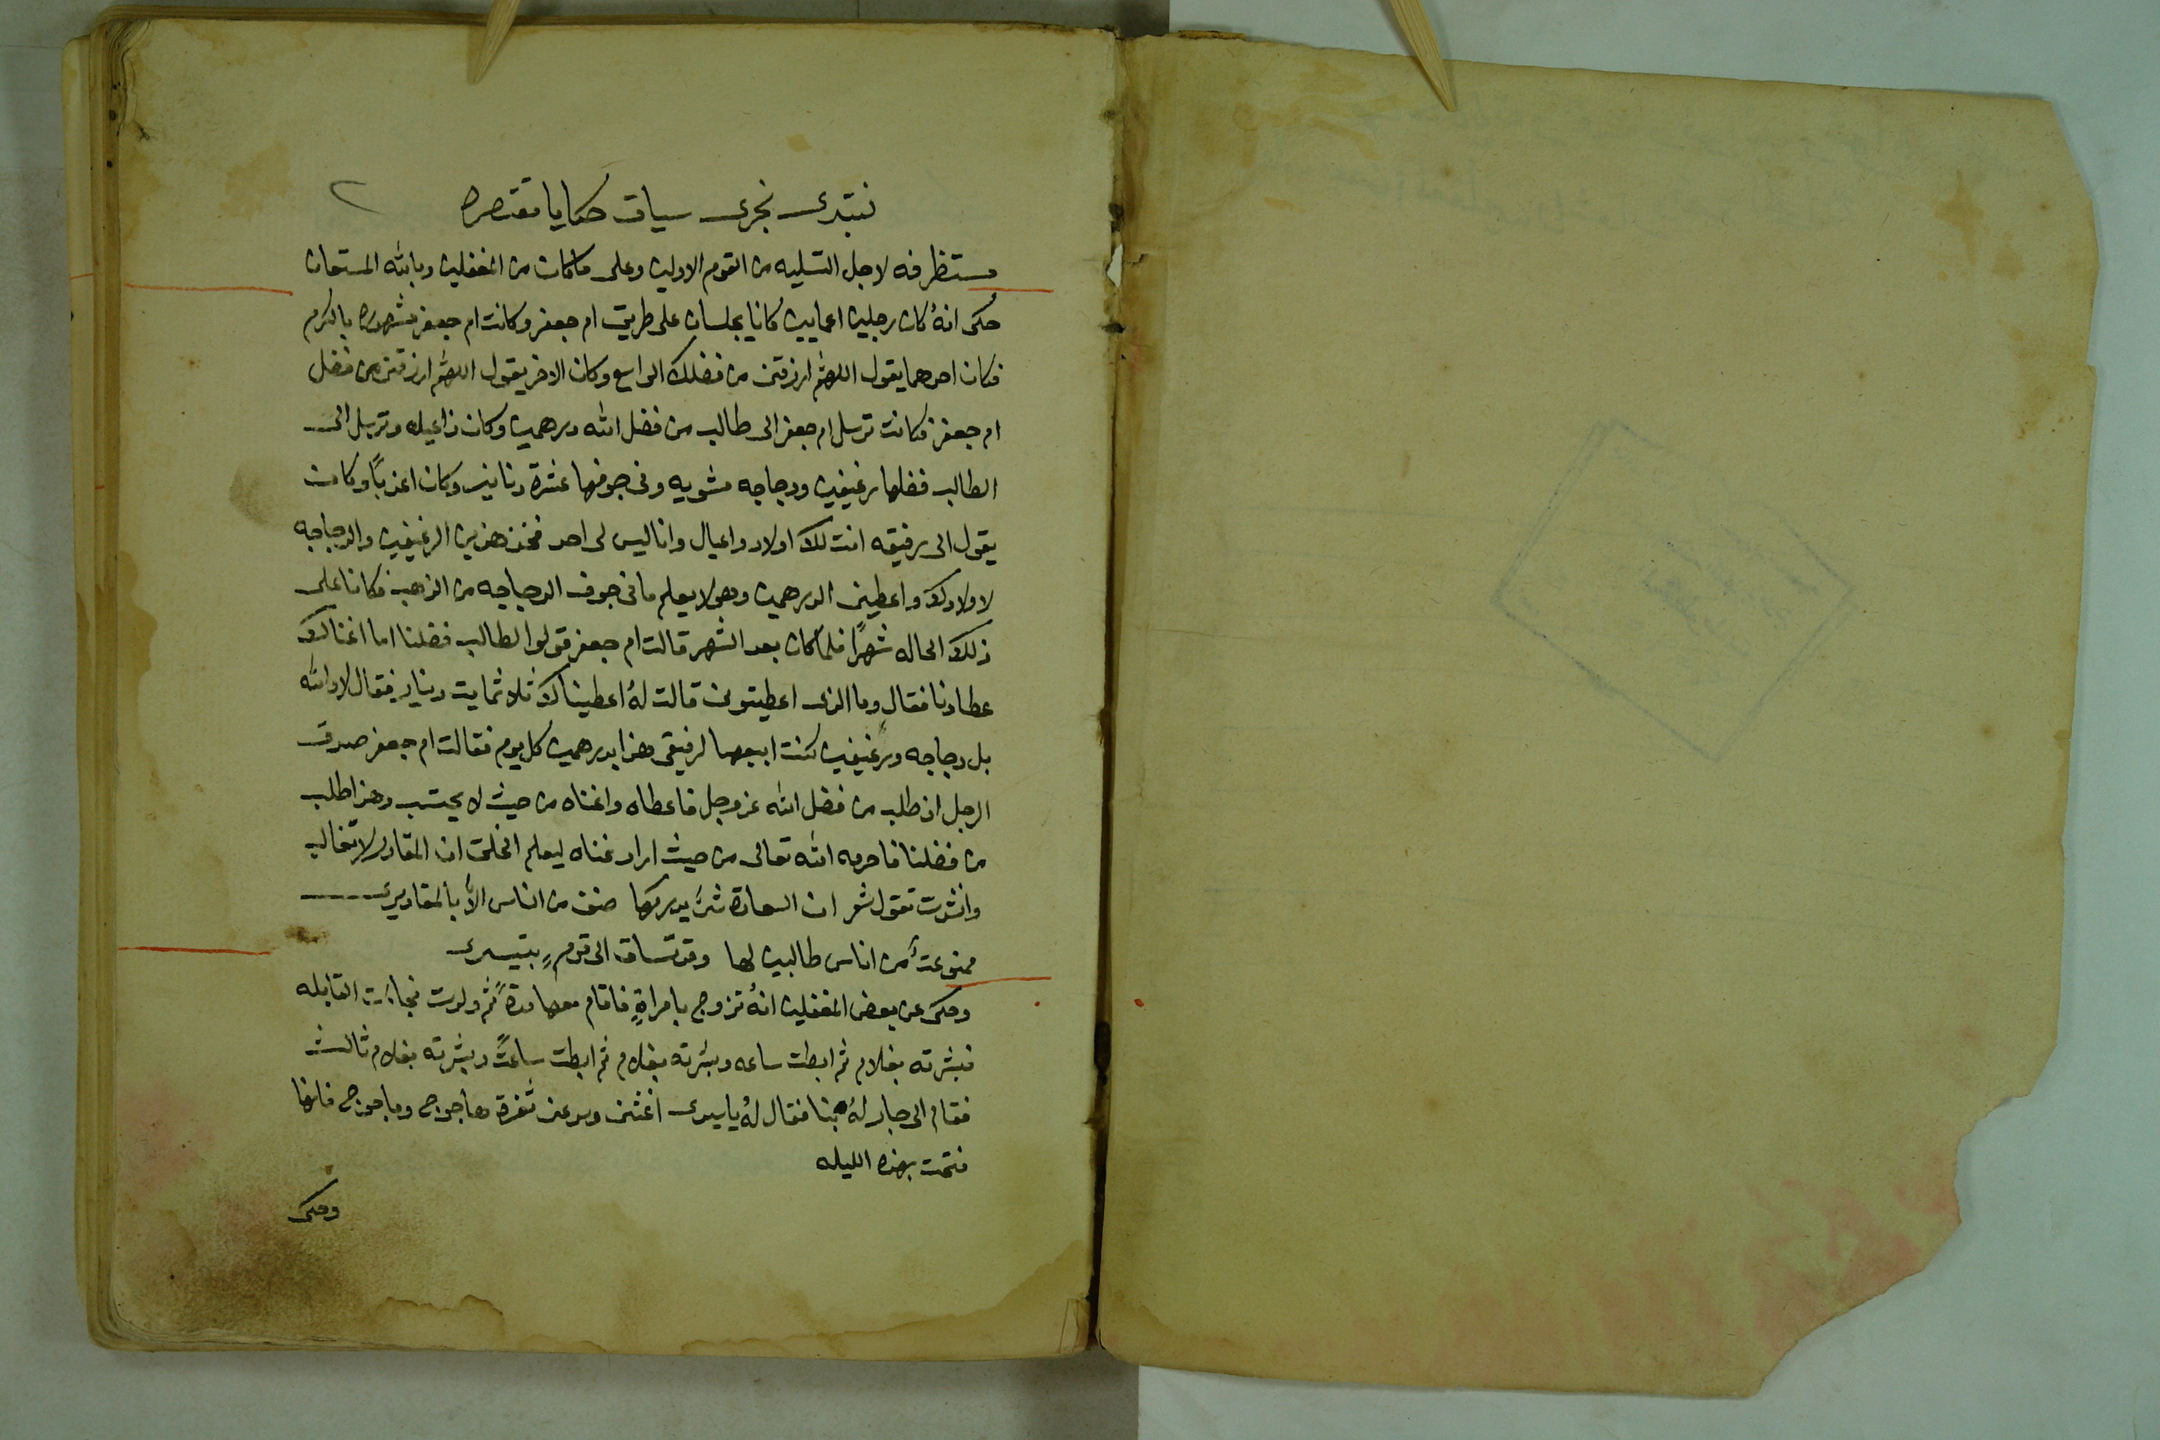 نبتدى نجرى سياق حكايا مقتصره
مستظرفه لاجل التسليه من القوم الاولين وعلى ماكان من المغفلين وبالله المستعان
حكى انهُ كان رجلين اعمايين كانا يجلسان على طريق ام جعفر وكانت ام جعفر مشهوره بالكرم
فكان احدهما يقول اللهم ارزقنى من فضلك الواسع وكان الاخر يقول اللهم ارزقنى من فضل
ام جعفر فكانت ترسل ام جعفر الى طالب من فضل الله درهمين وكان ذا عيله وترسل الى
الطالب فضلها رغيفين ودجاجه مشويه وفى جوفها عشرة دنانير وكان اعزبًا وكان
يقول الى رفيقه انت لك اولاد واعيال وانا ليس لى احد فخذ هذين الرغيفين والدجاجه
لاولادك واعطينى الدرهمين وهو لا يعلم ما فى جوف الدجاجه من الذهب فكانا على
ذلك الحاله شهرًا فلما كان بعد الشهر قالت ام جعفر قولوا لطالب فضلنا اما اغناك
عطاونا فقال وما الذى اعطيتونى قالت لهُ اعطيناك ثلاثمايت دينار فقال لا والله
بل دجاجه ورغيفين كنت ابيعها لرفيقى هذا بدرهمين كل يوم فقالت ام جعفر صدق
الرجل اذ طلب من فضل الله عز وجل فاعطاه واغناه من حيث لا يحتسب وهذا طلب
من فضلنا فاحرمه الله تعالى من حيث اراد غناه ليعلم الخلق ان المقادر لا تغالب
وانشدت تقول شعر ان السعادة شئ يدركها صنف من الناس الا بالمقاديرى
ممنوعتٌ من اناس طالبين لها وقد تساق الى قومٍ بتيسرى
وحكى عن بعض المغفلين انهُ تزوج بامراةٍ فاقام معها مدةً ثم ولدت فجات القابله
فبشرته بغلام ثم ابطت ساعه وبشرته بغلام ثم ابطت ساعتً وبشرته بغلام ثالث
فقام الى جار لهُ بنا فقال لهُ يا سيدى اغثنى وسد عنى ثغرة هاجوج وماجوج فانها
فتحت بهذه الليله
وحكى